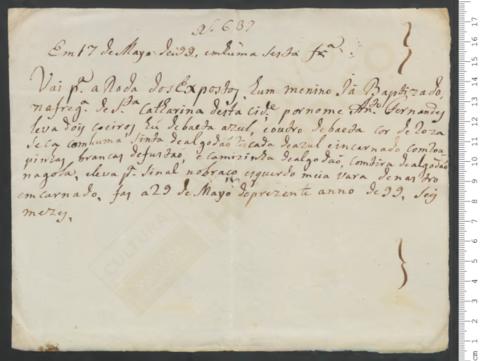 Nº 637
Em 17 de Mayo de 99, em huma Sesta fra.
Vai pª a Roda dos Expostos, hum menino Já Baptizado,
na freg.ª de S.ta Catharina desta Cid.e por nome An.to Fernandes
leva dois Coeiros, hu de baeta azul, e outro de baeta cor de Roza
com huma Sinta de algodão e incarnado com
pintas, brancas de fustão, e camizinha de algodão, com tira de algodão
na goda, e leva pª Sinal no braço esquerdo meia vara de nastro
emcarnado, fas a 29 de Mayo do prezente anno de 99, Seis
mezes,